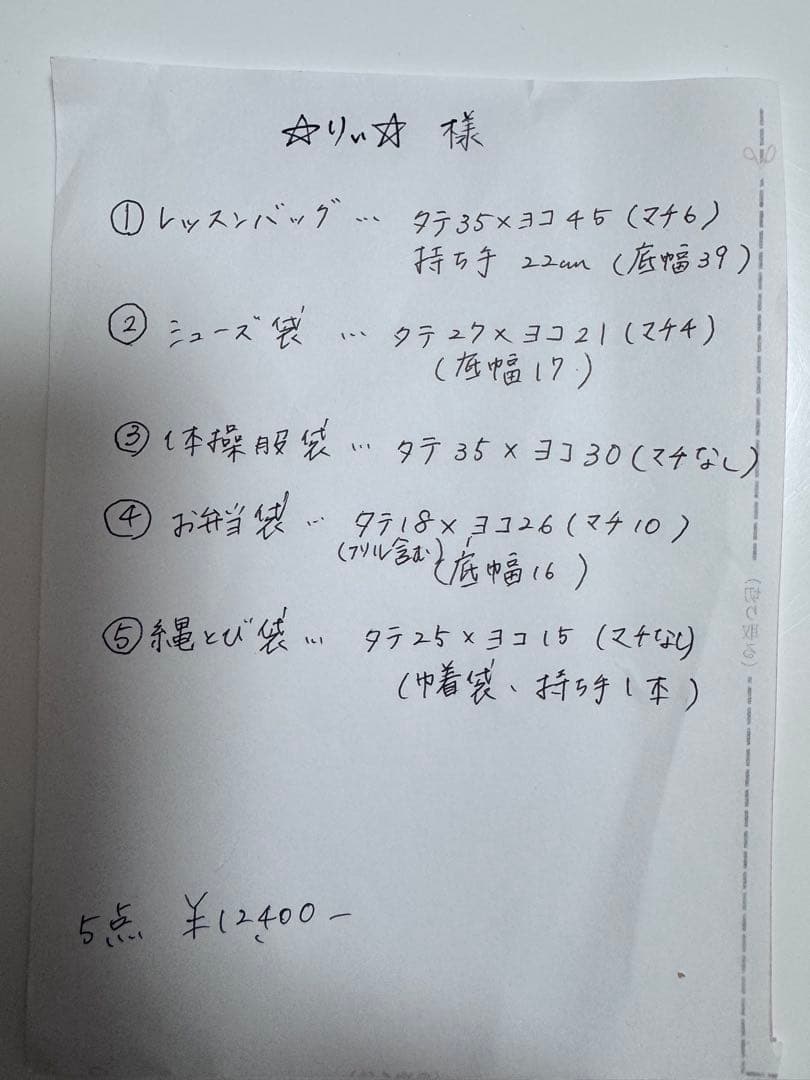 ☆りぃ☆ 様
① レッスンバッグ … タテ35×ヨコ45(マチ6)
持ち手 22cm (底幅39)
② シューズ袋 … タテ27×ヨコ21(マチ4)
(底幅17)
③ 体操服袋 … タテ35×ヨコ30(マチなし)
④ お弁当袋 … タテ18×ヨコ26(マチ10)
(フリル含む) (底幅16)
⑤ 縄とび袋 … タテ25×ヨコ15(マチなし)
(巾着袋、持ち手1本)
5点 ¥12,400-
(切り取る)